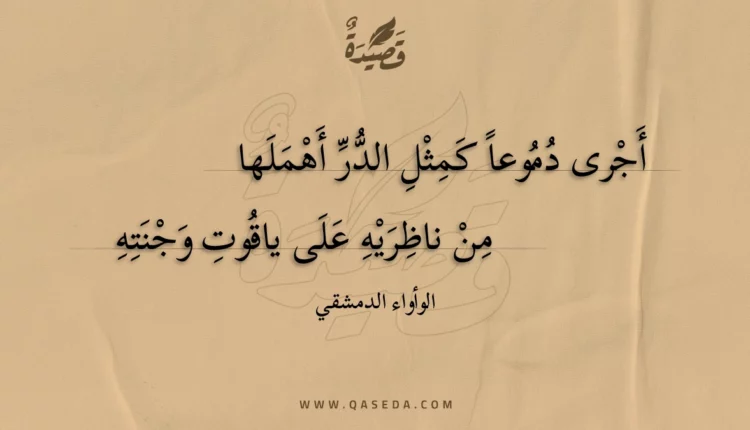 قَصِيدَةٌ
أَجْرى دُمُوعاً كَمِثْلِ الدُّرِّ أَهْمَلَها
مِنْ ناظِرَيْهِ عَلَى ياقُوتِ وَجْنَتِهِ
الوأواء الدمشقي
WWW.QASEDA.COM